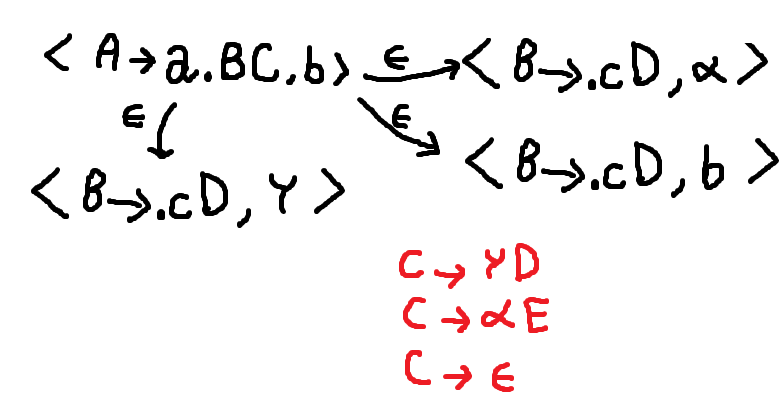 < A → a.BC, b > ϵ < B → .cD, α >
ϵ ϵ
< B → .cD, b >
< B → .cD, γ >
C → γD
C → αE
C → ϵ